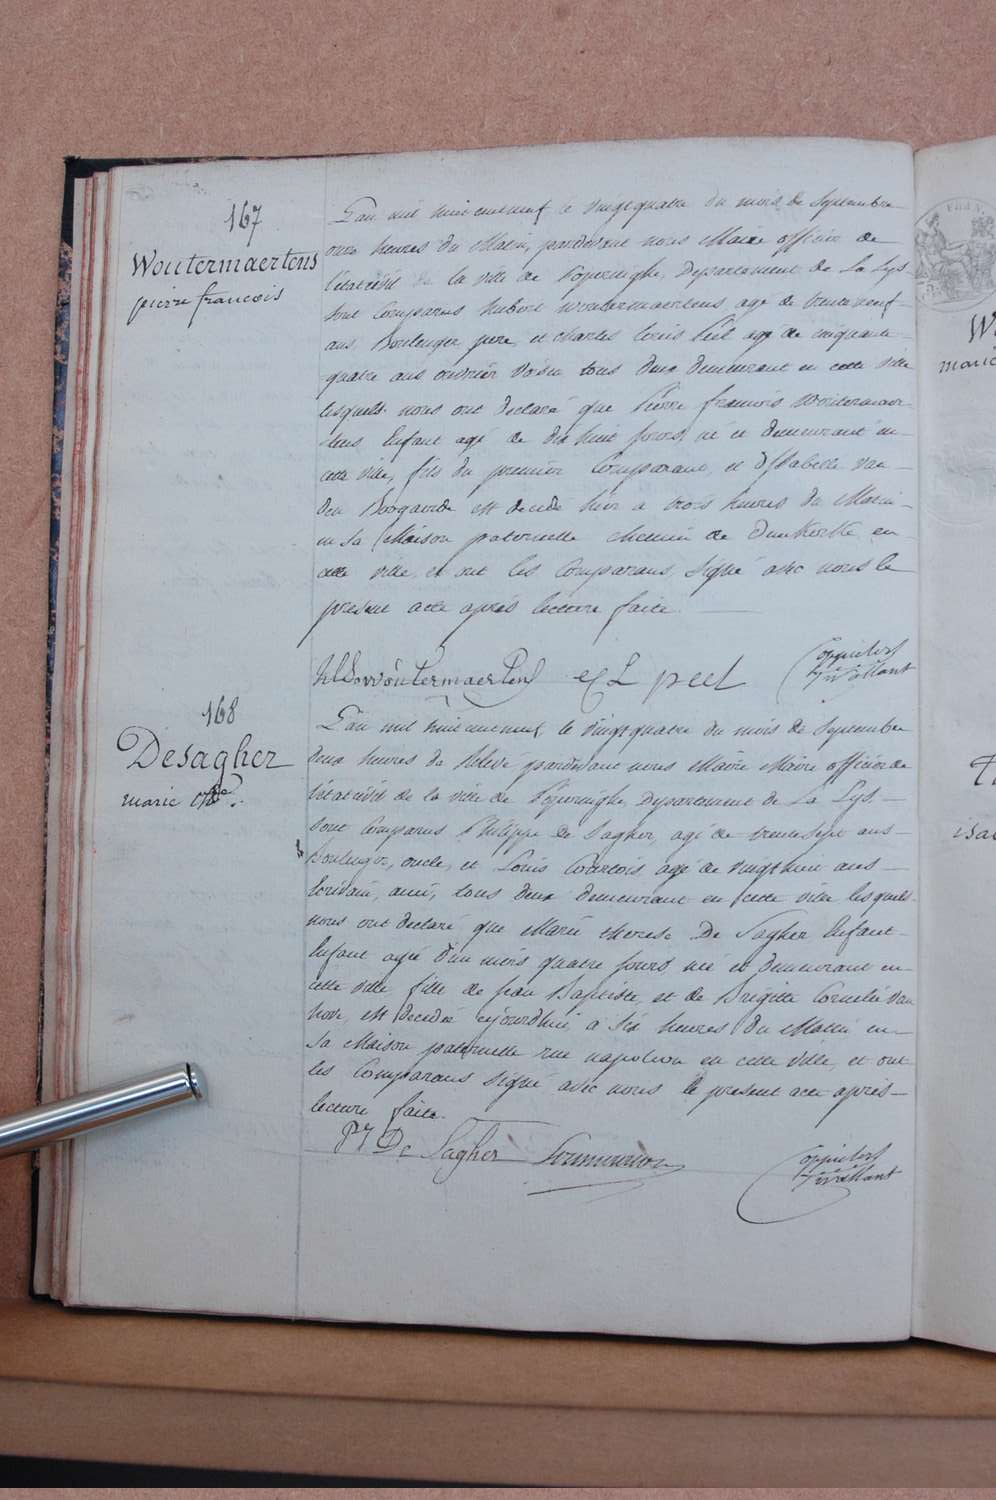 167
Woutermaertens
pierre francois
L'an mil huit cent neuf le vingt quatre du mois de Septembre
onze heures du Matin, pardevant nous Maire officier de
l'état civil de la ville de Poperinghe, Departement de La Lys
sont Comparus Hubert Woutermaertens agé de trente neuf
ans, Boulenger pere, et Charles Louis Péel agé de cinquante
quatre ans ouvrier Voisin tous deux demeurant en cette ville
lesquels nous ont declaré que Pierre francois Woutermaer
tens Enfant agé de dix huit jours, né et demeurant en
cette ville, fils du premier Comparant, et d'Isabelle Van
den Boogaerde est decedé hier a trois heures du Matin
en sa Maison paternelle chemin de Dunkerke en
cette ville, et ont les Comparans, Signé avec nous le
present acte après lecture faite.
Woutermaertens C L peel
168
Desagher
marie thse.
L'an mil huit cent neuf, le vingt quatre du mois de Septembre
deux heures de Relevé pardevant nous Maire Maire officier de
l'état civil de la ville de Poperinghe, Departement de La Lys,
sont Comparus Philippe de Sagher, agé de trente sept ans
Boulenger, oncle, et Louis Courtois, agé de vingt huit ans
Ecrivain, ami, tous deux demeurant en cette ville lesquels
nous ont declaré que Marie therese De Sagher Enfant
Enfant agé d'un mois quatre jours né et demeurant en
cette ville fille de Jean Baptiste, et de Brigitte Cornelie Van
hove, est decedée cejourdhui, a Six heures du Matin en
Sa Maison paternelle rue napoleon en cette ville, et ont
les Comparans Signé avec nous le present acte après
lecture faite.
De Sagher
marie
isa